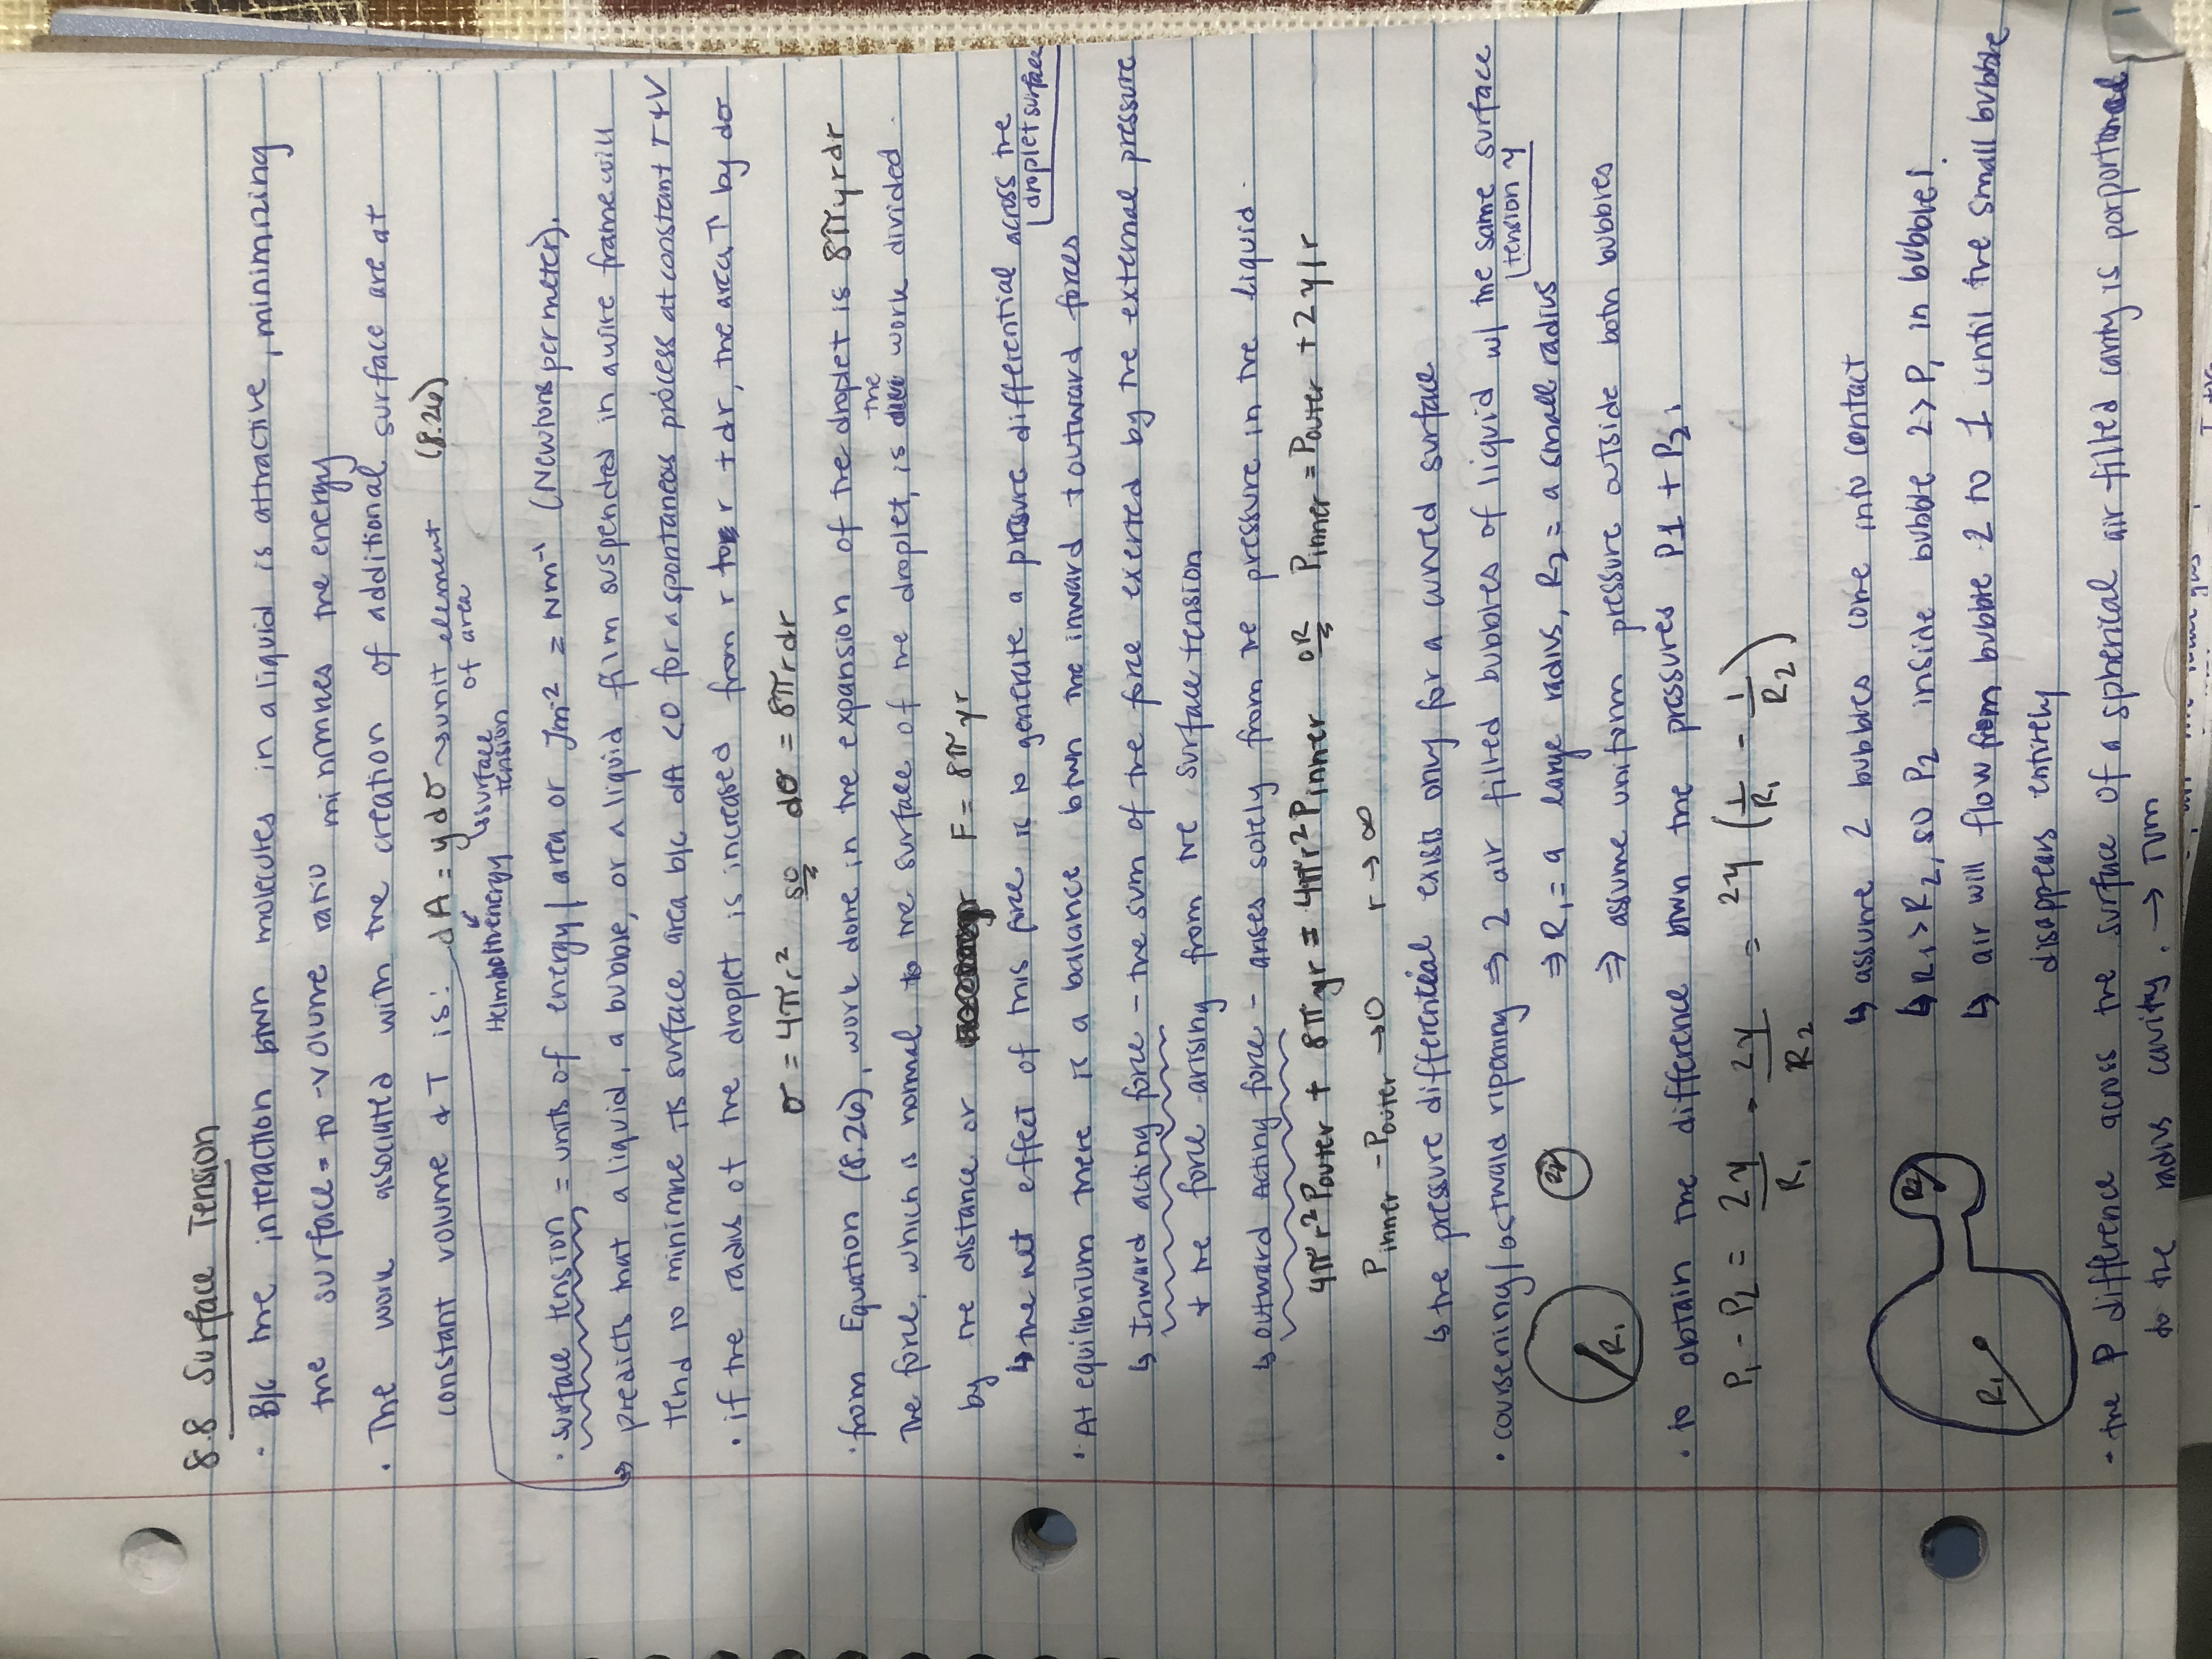 8.8 Surface Tension
· B/c the interaction btwn molecules in a liquid is attractive, minimizing
the surface-to-volume ratio minimizes the energy
· The work associated with the creation of additional surface are at
constant volume & T is: dA = γdσ → unit element (8.26)
of area
Helmholtz energy ↳ surface
tension
· surface tension = units of energy/area or Jm⁻² = Nm⁻¹ (Newtons per meter).
↳ predicts that a liquid, a bubble, or a liquid film suspended in a wire frame will
tend to minimize its surface area b/c dA <0 for a spontaneous process at constant T & V
· if the radius of the droplet is increased from r to r + dr, the area ↑ by dσ
σ = 4πr² so dσ = 8πrdr
· from Equation (8.26), work done in the expansion of the droplet is 8πγrdr
The force, which is normal to the surface of the droplet, is the work divided
by the distance or F = 8πγr
↳ the net effect of this force is to generate a pressure differential across the
droplet surface
· At equilibrium there is a balance btwn the inward + outward forces
↳ Inward acting force - the sum of the force exerted by the external pressure
+ the force arising from the surface tension
↳ Outward Acting force - arises solely from the pressure in the liquid.
4πr²Pouter + 8πγr = 4πr²Pinner OR Pinner = Pouter + 2γ/r
Pinner - Pouter → 0 r → ∞
↳ the pressure differential exists only for a curved surface
· coursening/ostwald ripening ⇒ 2 air filled bubbles of liquid w/ the same surface
tension γ
R₁ R₂ ⇒ R₁ = a large radius, R₂ = a small radius
⇒ assume uniform pressure outside both bubbles
· to obtain the difference btwn the pressures P1 + P₂:
P₁ - P₂ = 2γ/R₁ - 2γ/R₂ = 2γ (1/R₁ - 1/R₂)
↳ assume 2 bubbles come into contact
R₂ ↳ R₁ > R₂, so P₂ inside bubble 2 > P₁ in bubble 1.
R₁ ↳ air will flow from bubble 2 to 1 until the small bubble
disappears entirely
· the P difference across the surface of a spherical air filled cavity is porportional
to the radius cavity. → turn